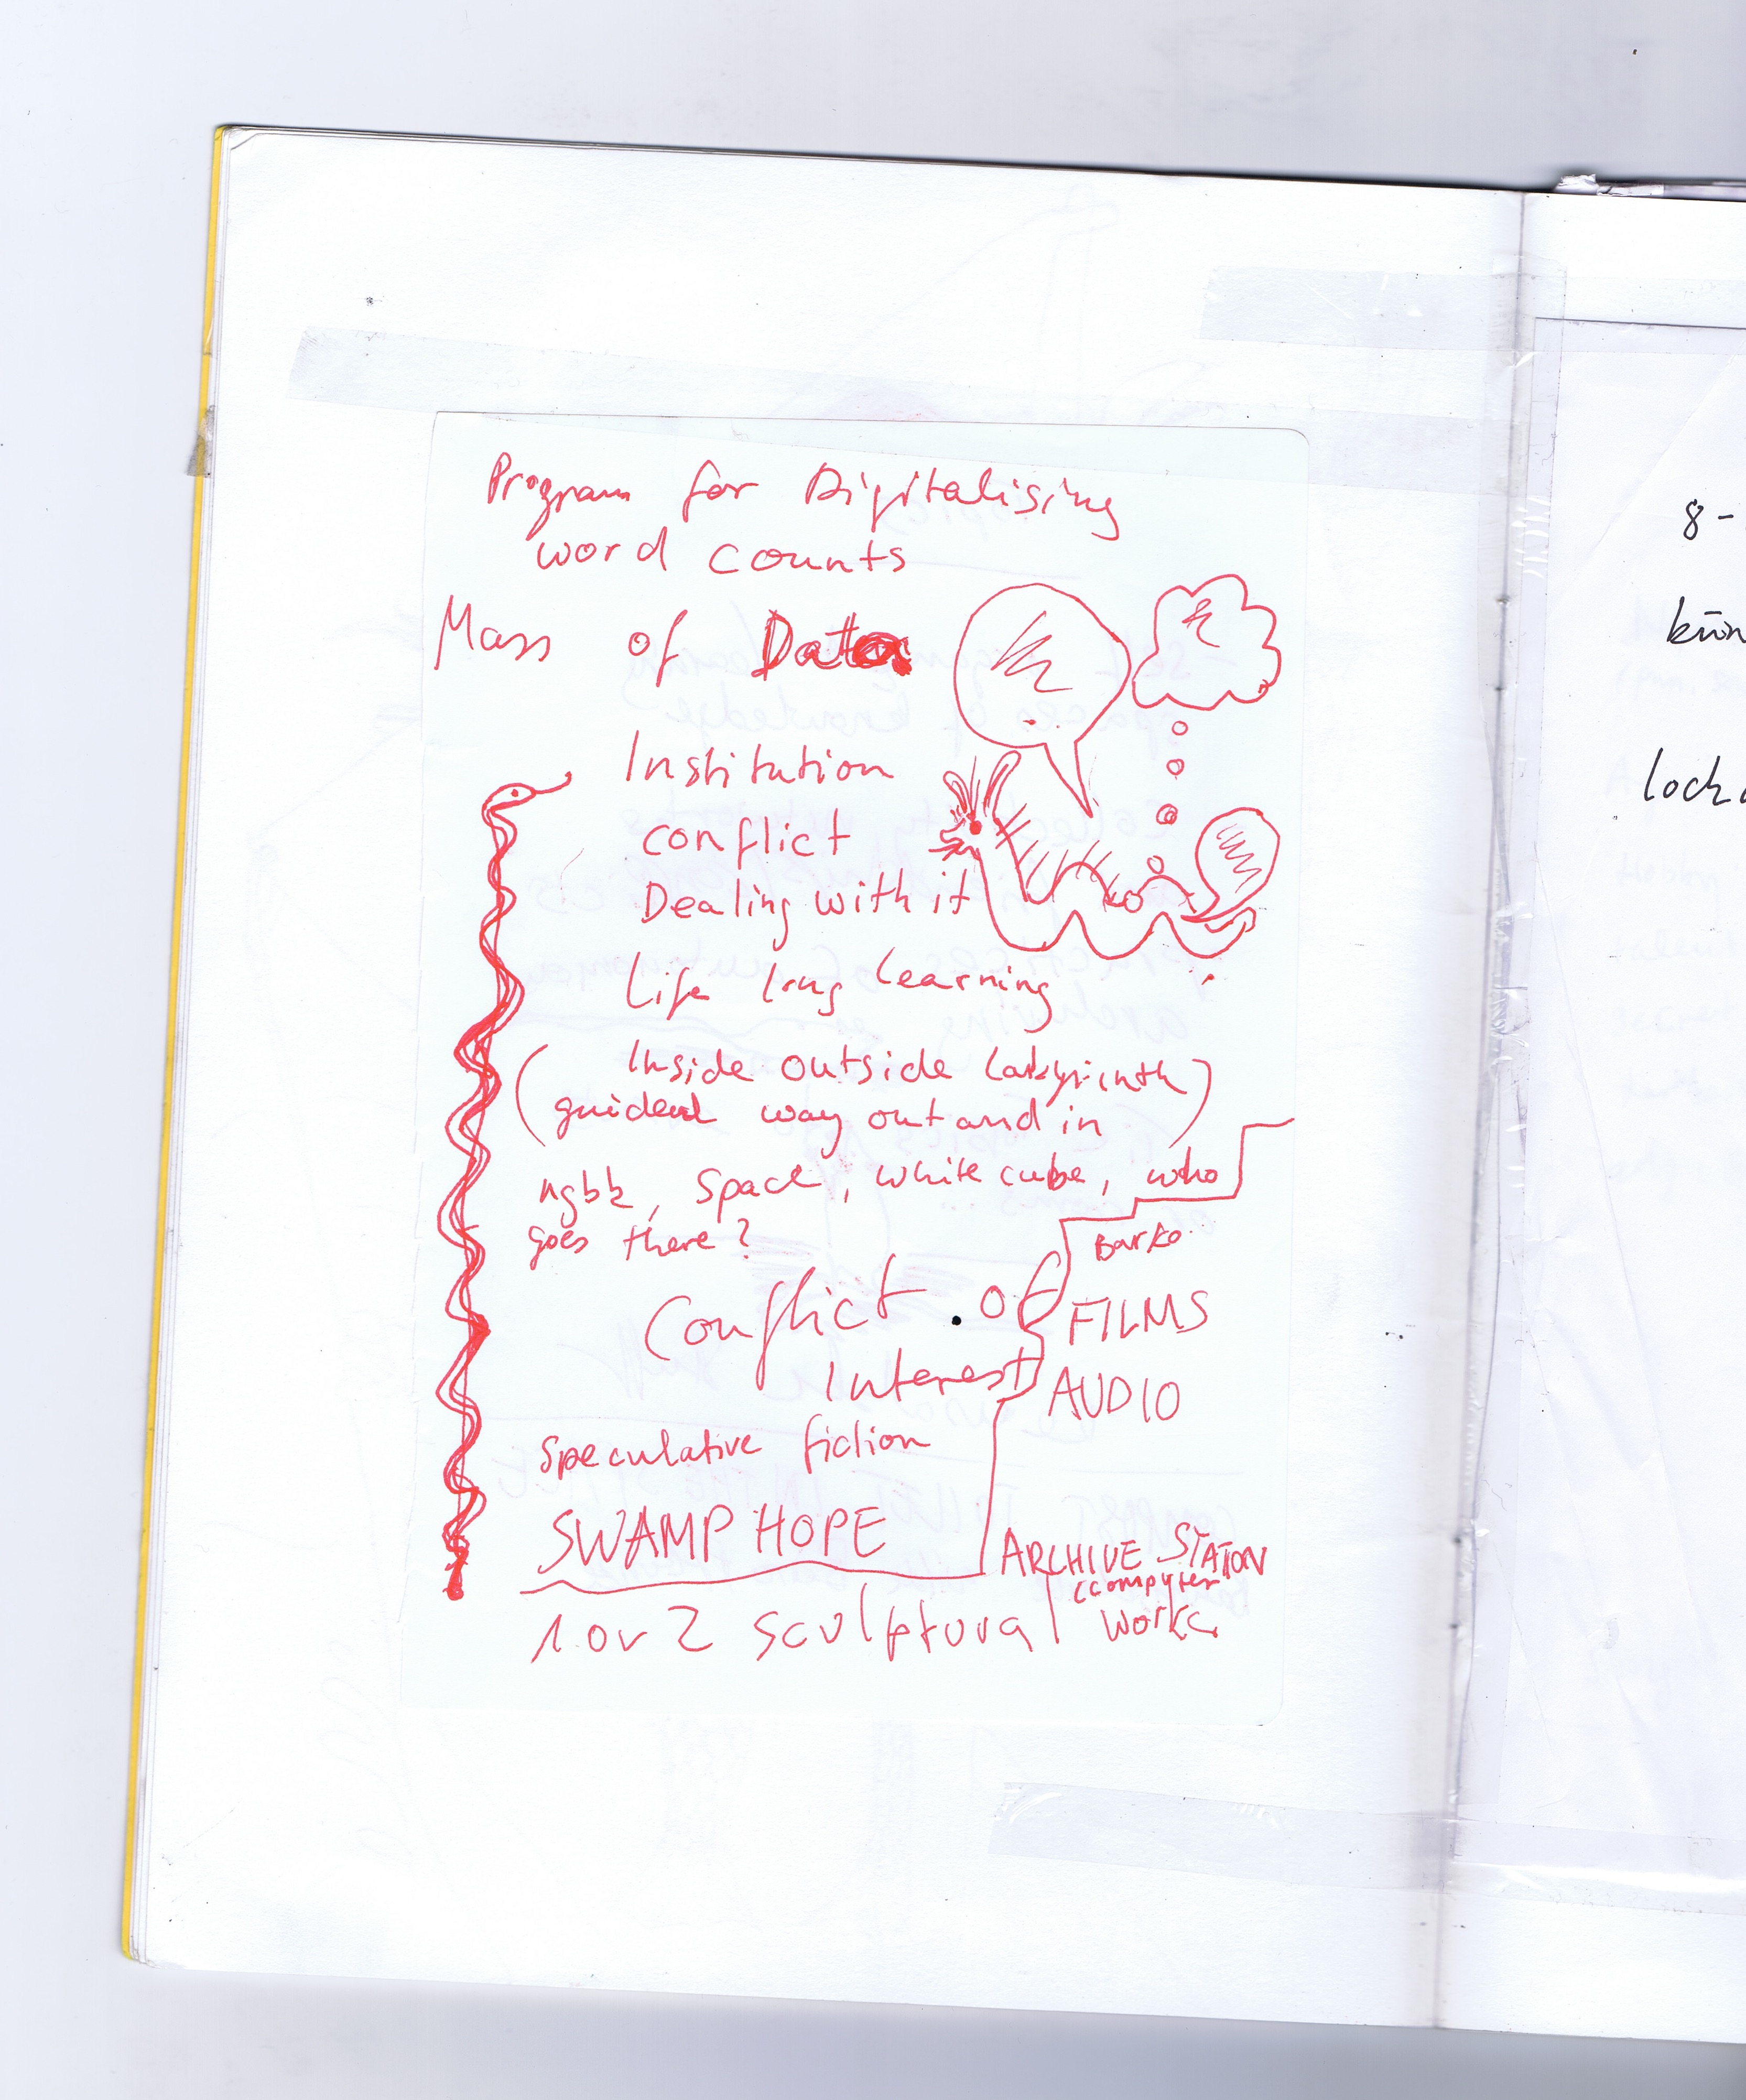 Program for Digitalising
word counts
Mass of Data
Institution
conflict
Dealing with it
Life long Learning
(Inside outside Labyrinth
guided way out and in)
ngbk, space, white cube, who
goes there?
Barko
Conflict of
Interest
FILMS
AUDIO
Speculative fiction
SWAMP HOPE
ARCHIVE STATON
(computer
1 or 2 sculptural
works
8-
kün
loch